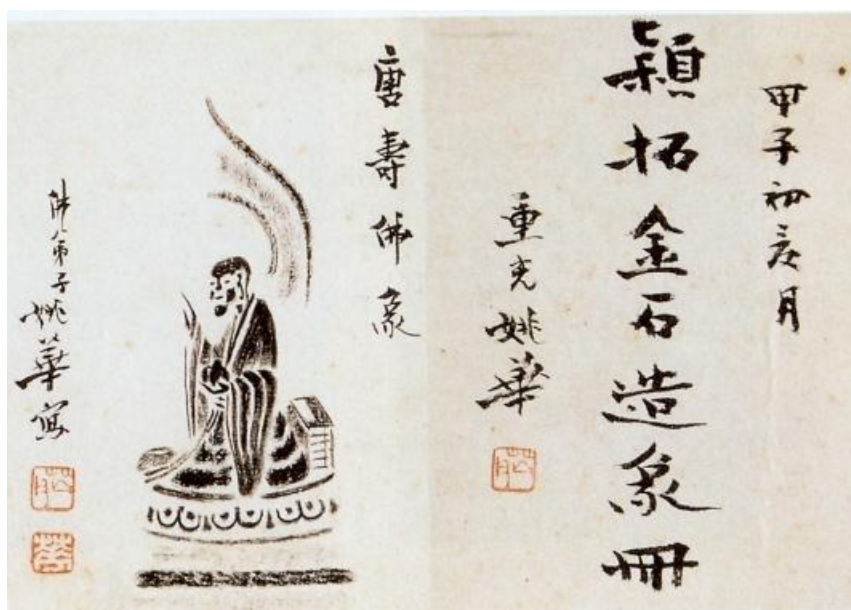 甲子初月
穎拓金石造象冊
重光姚華
唐壽佛象
佛弟子姚華寫